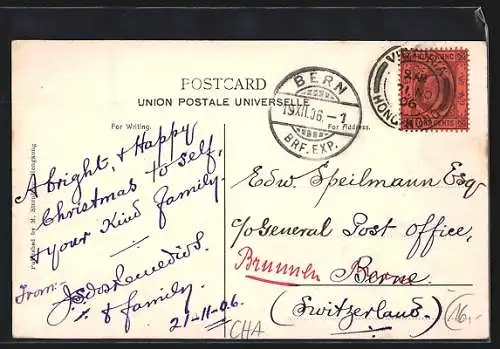 POSTCARD
UNION POSTALE UNIVERSELLE
For Writing.
For Address.
A bright, & Happy
Christmas to self,
& your Kind family.
From:-
J. S. dos Remedios.
& family.
21-11-06.
Edw. Speilmann Esq
c/o General Post Office,
Brunnen Berne.
(Switzerland)
CHA
16,-
BERN
19.XII.06.-7
BRF. EXP.
VICTORIA
HONG KONG
Published by M. Hongkong